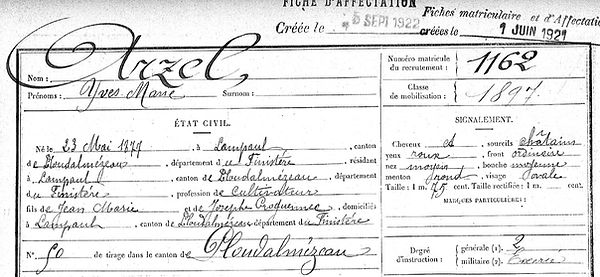 FICHE D'AFFECTATION
Créée le 5 SEPT 1922
Fiches matriculaire et d'Affectation
créées le 1 JUIN 1921
Nom : Arzel
Prénoms : Yves Marie Surnom :
Numéro matricule du recrutement : 1162
Classe de mobilisation : 1897
ÉTAT CIVIL.
Né le 23 Mai 1877, à Lampaul, canton
de Ploudalmézeau, département du Finistère, résidant
à Lampaul, canton de Ploudalmézeau, département
du Finistère, profession de Cultivateur
fils de Jean Marie et de Josèphe domiciliés
à Lampaul, canton de Ploudalmézeau département du Finistère
N° 50 de tirage dans le canton de Ploudalmézeau
SIGNALEMENT.
Cheveux et sourcils châtains
yeux roux, front ordinaire
nez moyen, bouche moyenne
menton rond, visage ovale
Taille : 1 m. 75 cent. Taille rectifiée : 1 m. cent.
MARQUES PARTICULIÈRES :
Degré d'instruction : générale (1). 2
militaire (2). Exercé